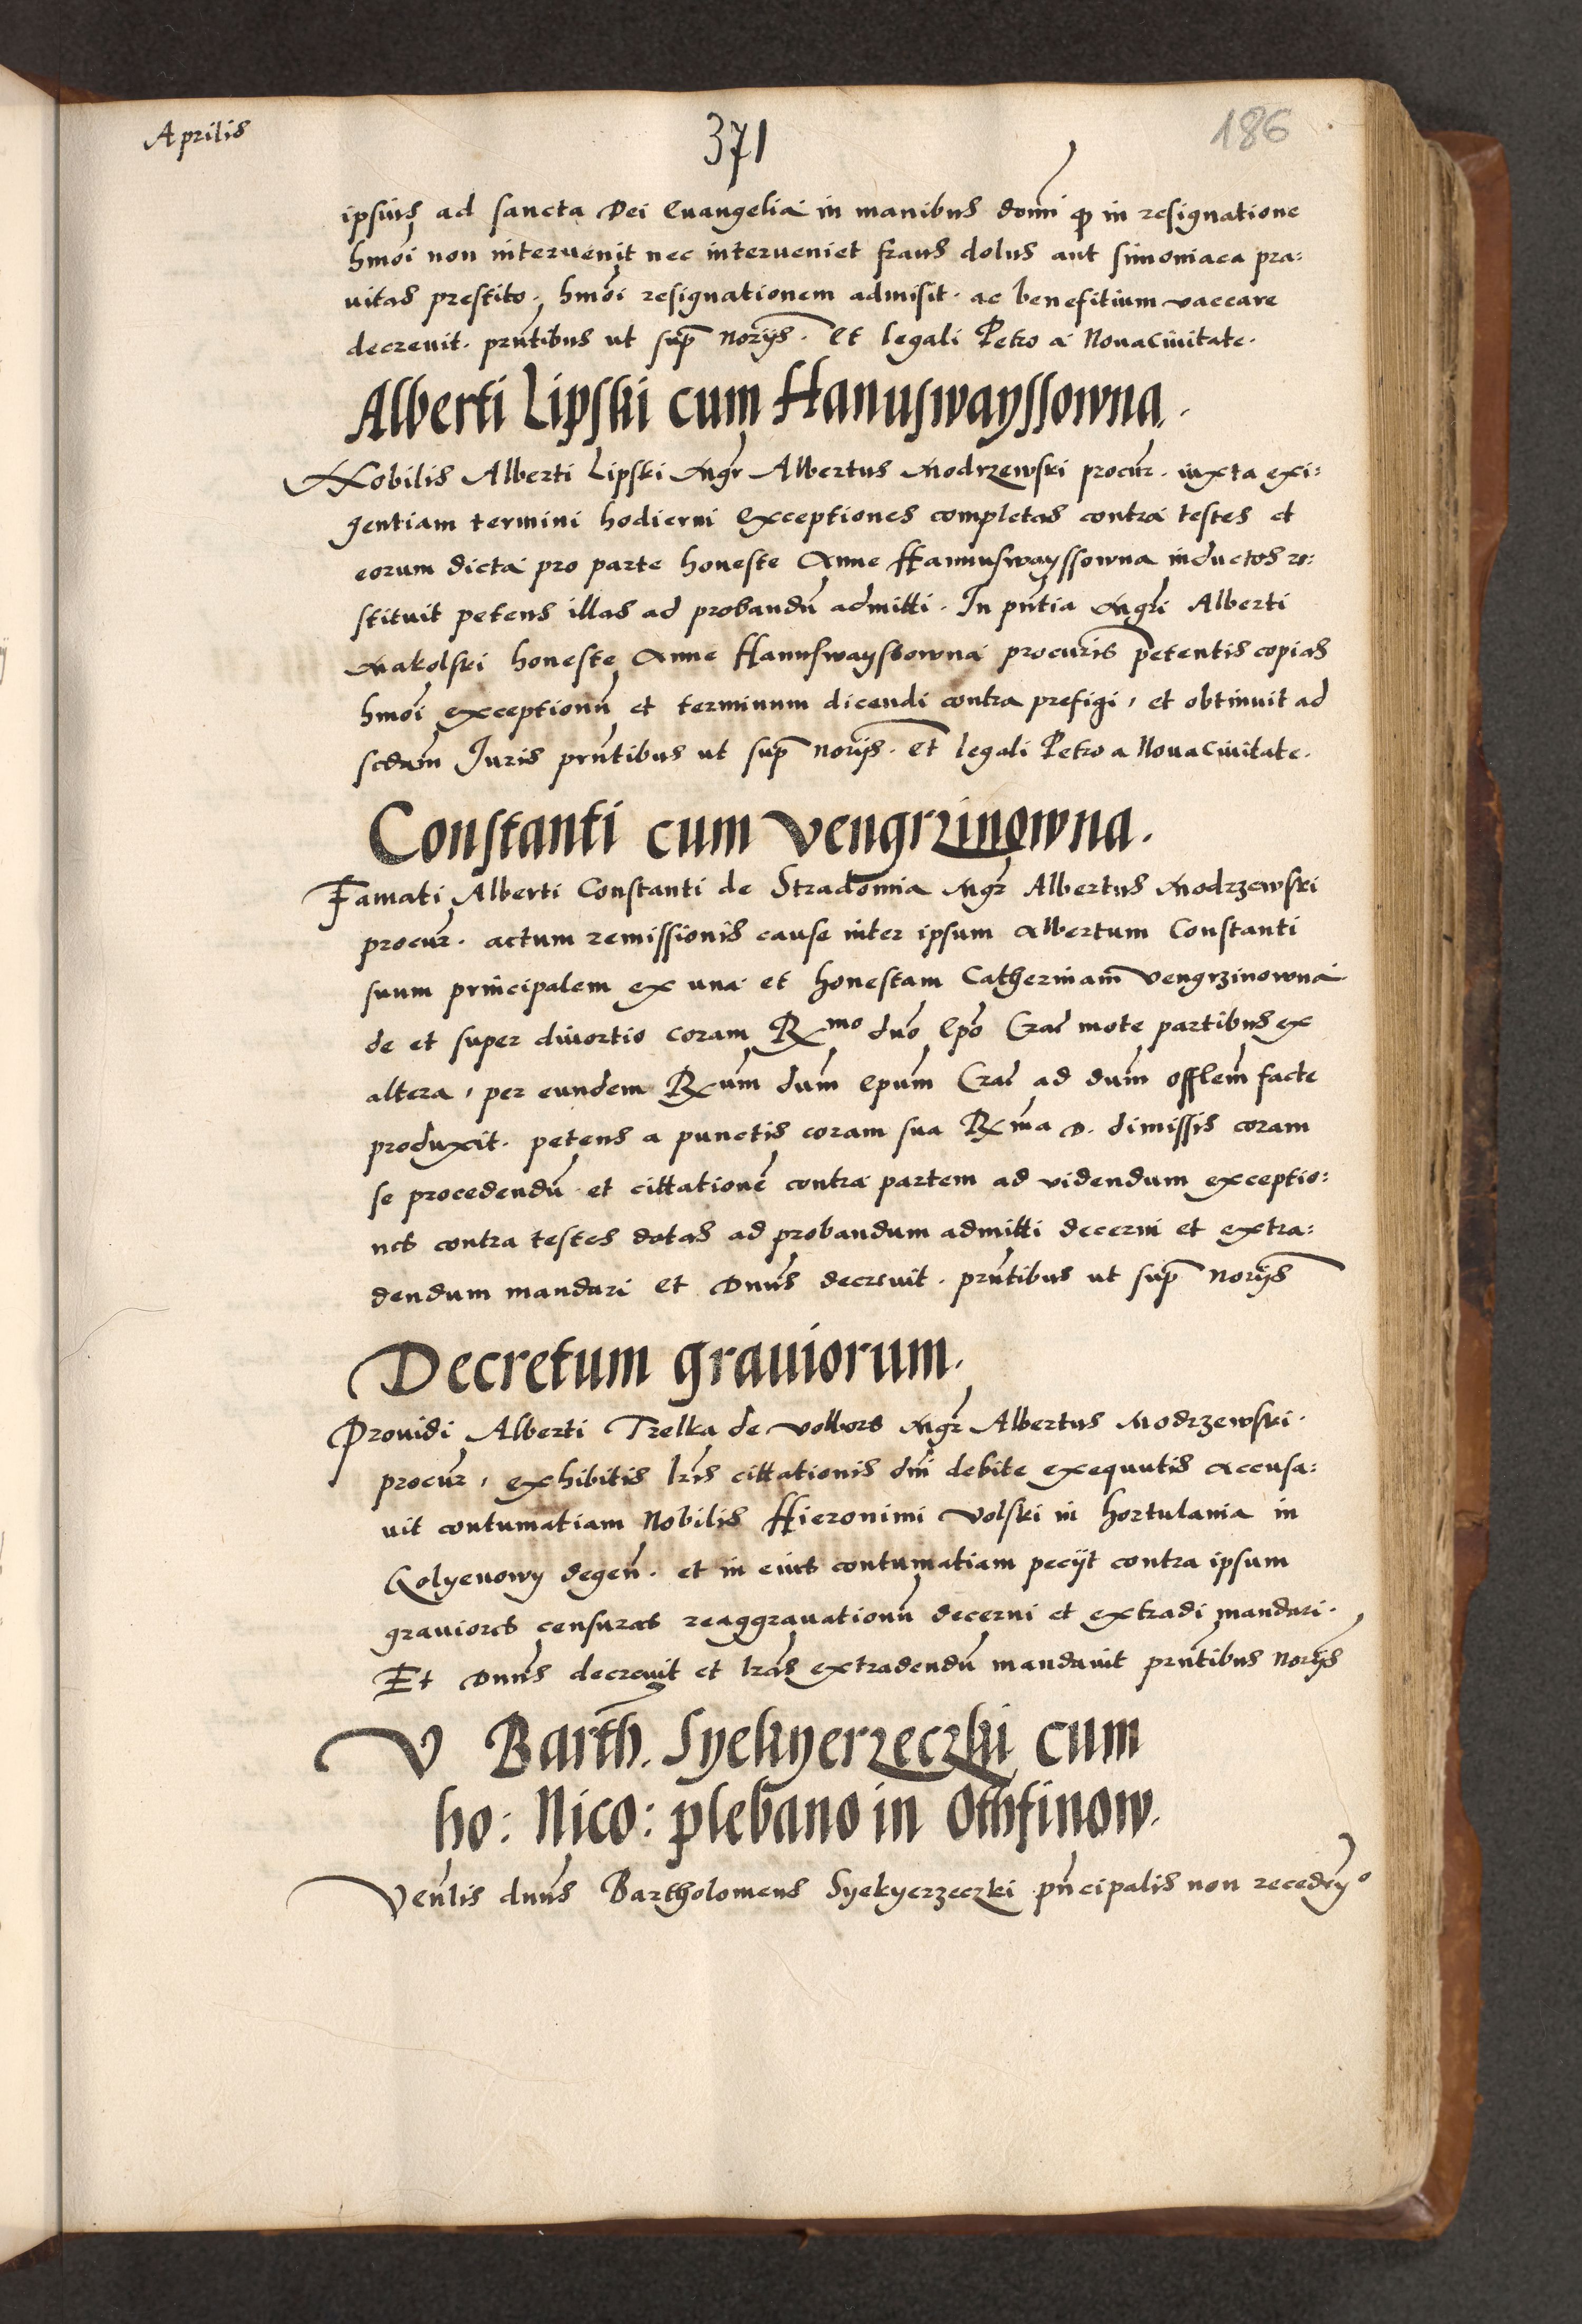 Aprilis
371
186
ipsius ad sancta Dei Evangelia in manibus domi qp in resignatione
hmoi non intervenit nec interveniet fraus dolus aut simoniaca pra:
vitas prestito, hmoi resignationem admisit. ac benefitium vaccare
decrevit. prntibus ut sup norijs. Et legali Petro a Nova Civitate.
Alberti Lipski cum Hanuswayssowna.
Nobilis Alberti Lipski Mgr Albertus Modrzewski procur. iuxta exi:
gentiam termini hodierni Exceptiones completas contra testes et
eorum dicta pro parte honeste Anne Hannuswayssowna inductos re:
stituit petens illas ad probandu admitti. In pntia Mgri Alberti
Makolski honeste Anne Hanuswayssowna procuris petentis copias
hmoi exceptionu et terminum dicendi contra prefigi, et obtinuit ad
scdam Juris prntibus ut sup norijs. et legali Petro a Nova Civitate.
Constanti cum Vengrzinowna.
Famati Alberti Constanti de Stradomia Mgr Albertus Modrzewski
procur. actum remissionis cause inter ipsum Albertum Constanti
suum principalem ex una et honestam Catherinam Vengrzinowna
de et super divortio coram Rmo duo Epo Crac mote partibus ex
altera, per eundem Rum dum Epum Crac ad dum offlem facte
produxit. petens a punctis coram sua Rma D. dimissis coram
se procedendu et cittatione contra partem ad videndum exceptio:
nes contra testes dotas ad probandum admitti decerni et extra:
dendum mandari et Dnus decrevit. prntibus ut sup norijs
Decretum graviorum.
Providi Alberti Trelka de Volbors Mgr Albertus Modrzewski.
procur, exhibitis lris cittationis dni debite exequutis accusa:
vit contumatiam Nobilis Hieronimi Volski in hortulania in
Kolyenowy degen. et in eius contumatiam pecijt contra ipsum
graviores censuras reaggravationu decerni et extradi mandari.
Et Dnus decrevit et lras extradendu mandavit prntibus norijs
V Barth. Syekyerzeczki cum
ho: Nico: plebano in Othfinow.
Venlis dnus Bartholomeus Syekyerzeczki pncipalis non